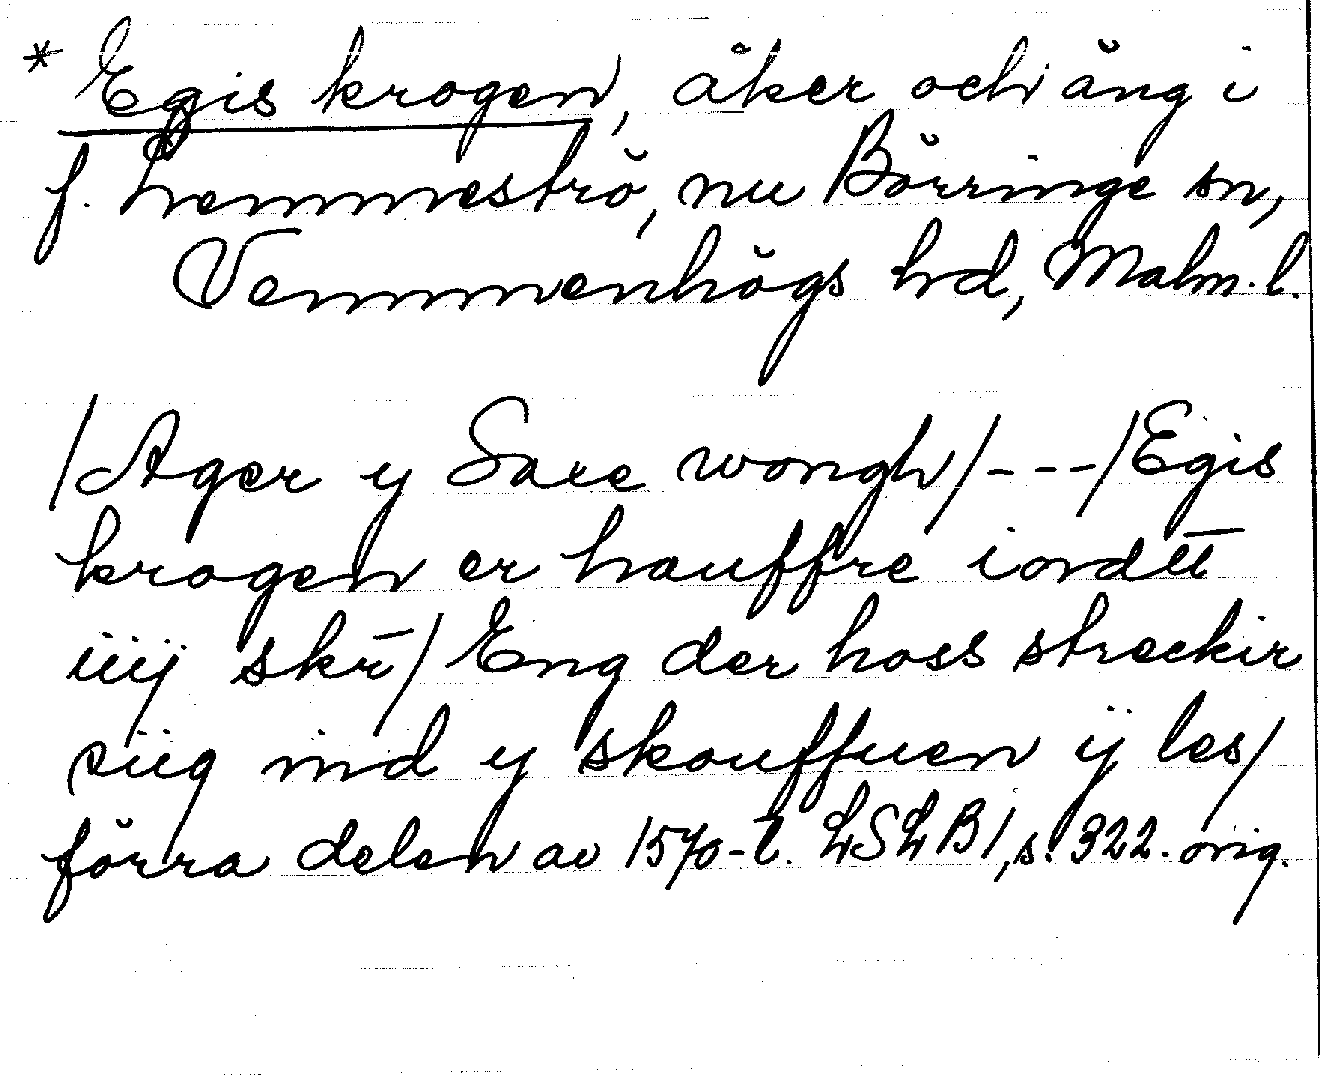 * Egis krogen, åker och äng i
f. Lemmeströ, nu Börringe sn,
Vemmenhögs hd, Malm. l.
/Ager y Saxe wongh/---/Egis
krogen er hauffre iordtt
iiij skr̄/ Eng der hoss streckir
siig ind y skouffuen ÿ les/
förra delen av 1570-t. LSLB1, s. 322. orig.